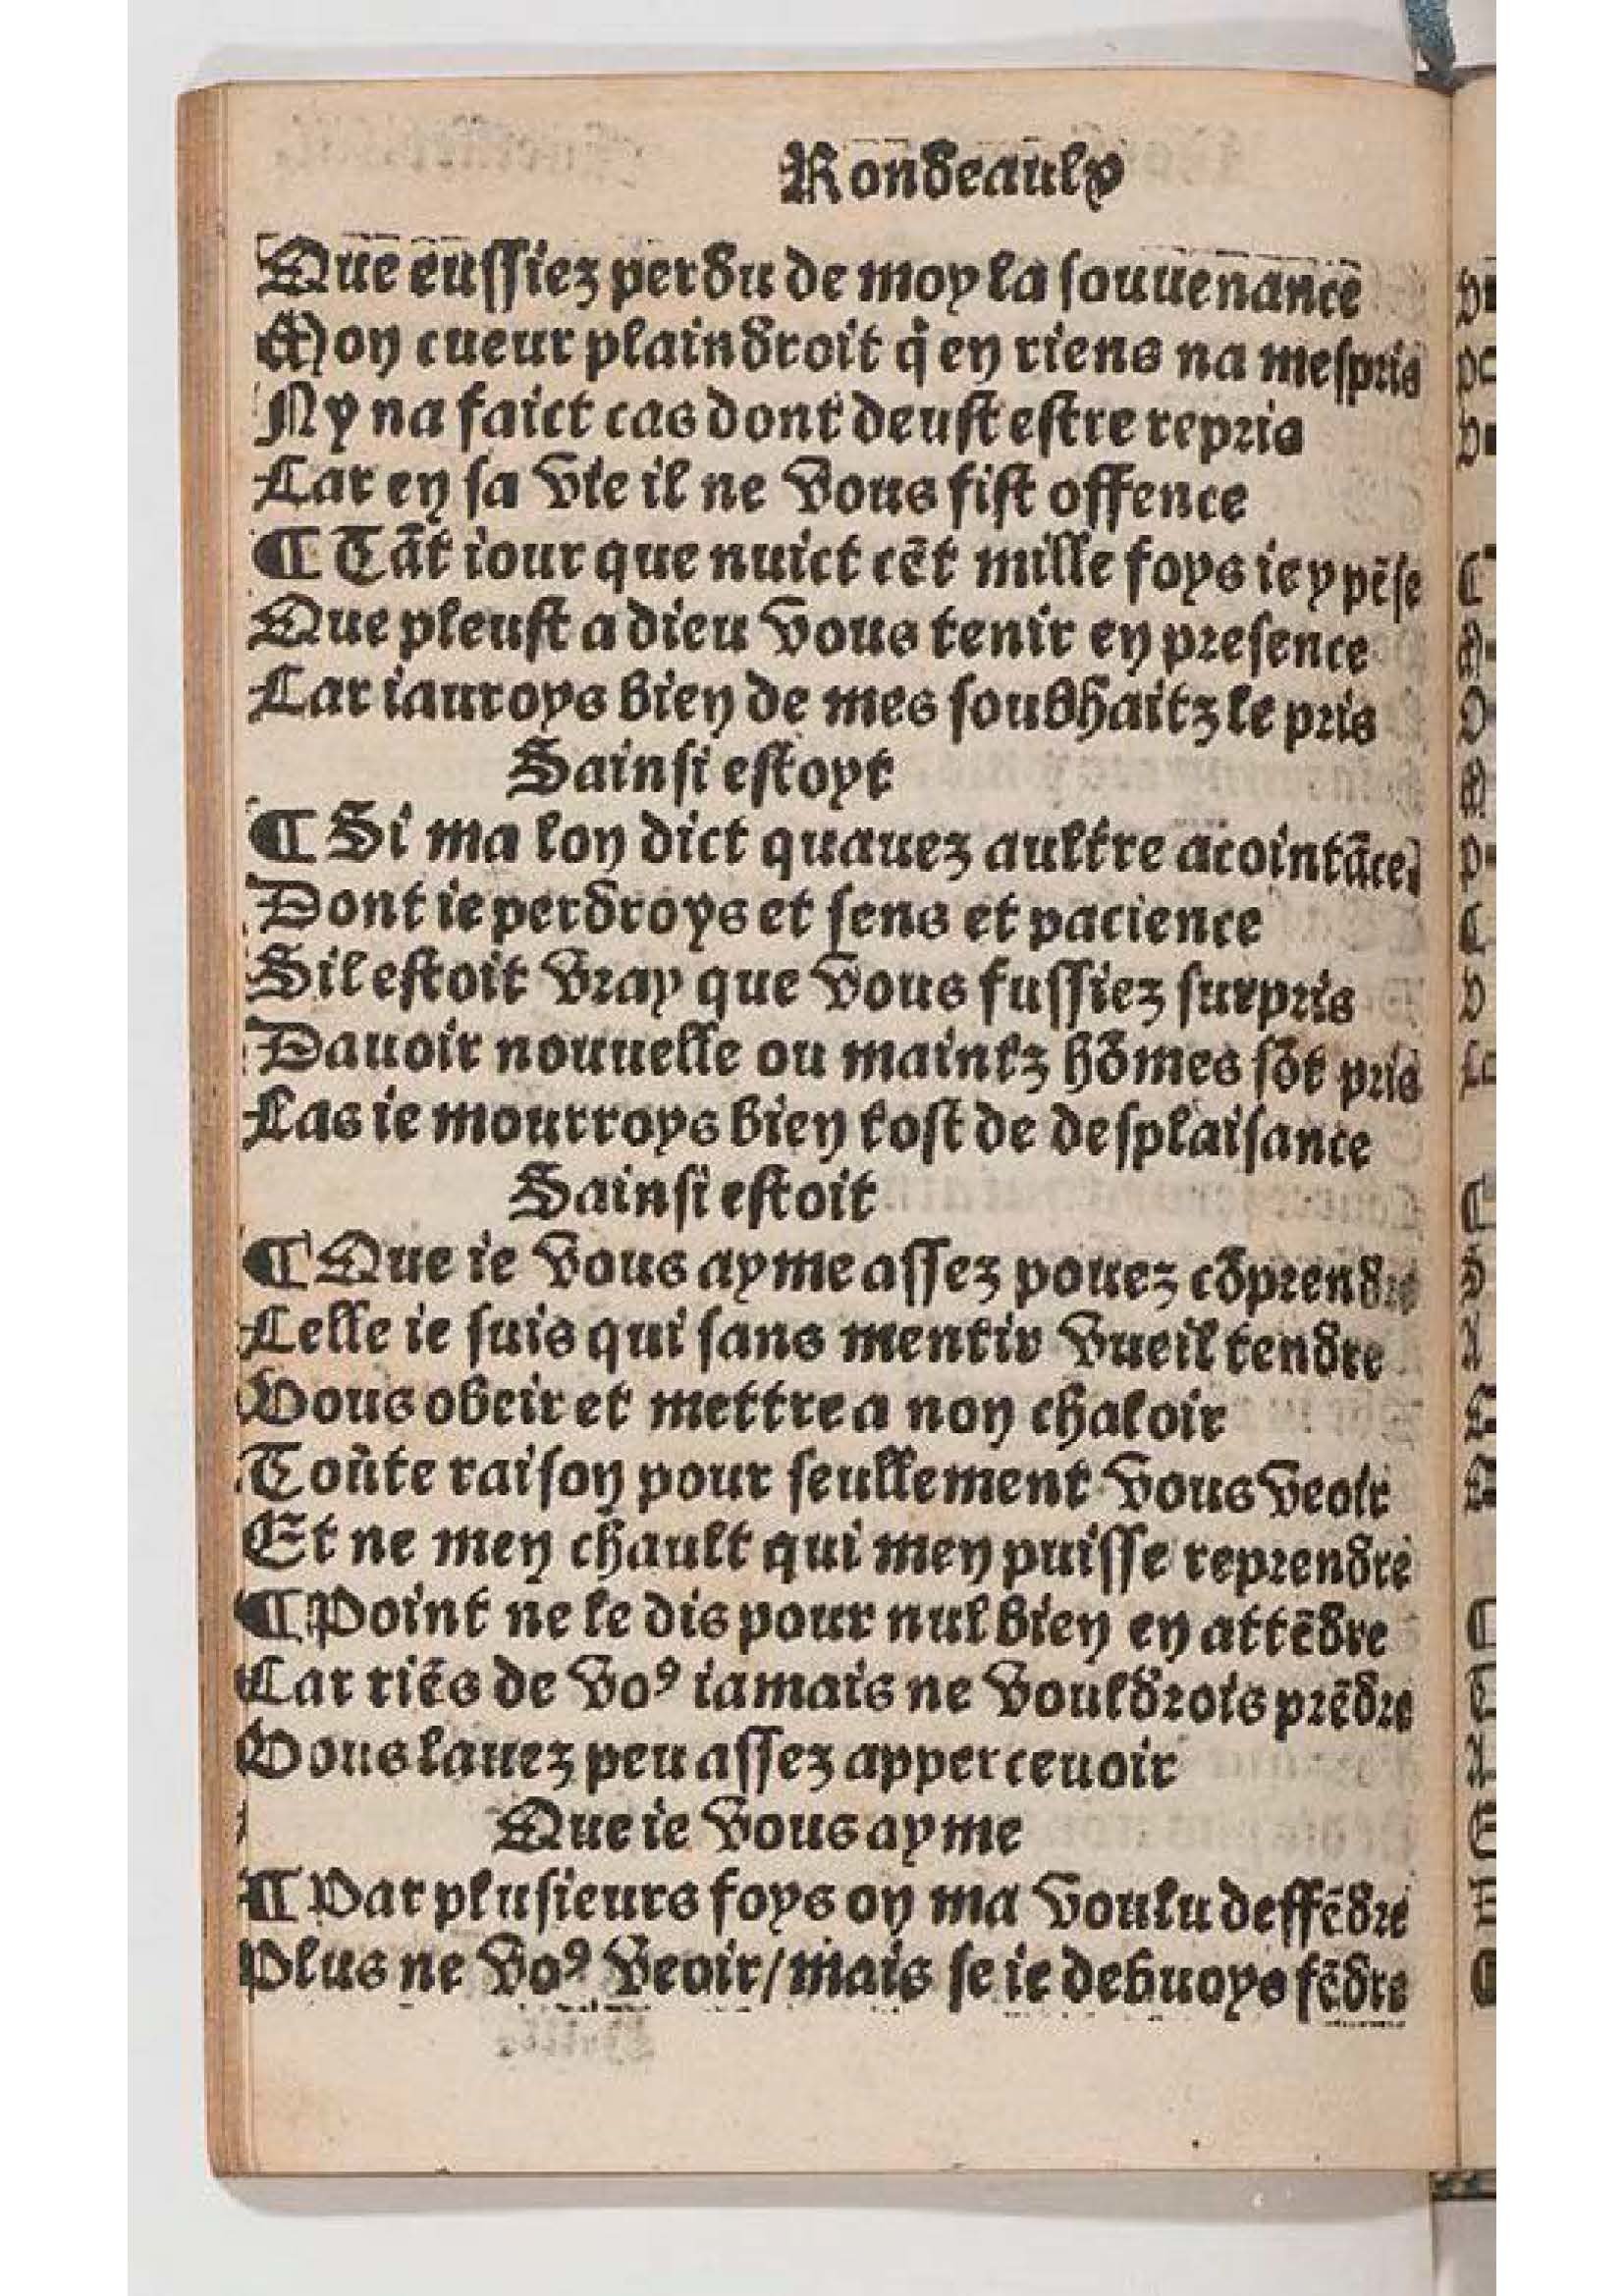 Rondeaulx
Que eussiez perdu de moy la souuenance
Mon cueur plaindroit q̃ en riens na mespris
Ny na faict cas dont deust estre repris
Car en sa vie il ne vous fist offence
¶ Tãt iour que nuict cẽt mille foys ie y pẽse
Que pleust a dieu vous tenir en presence
Car iauroys bien de mes soubhaitz le pris
Sainsi estoyt
¶ Si ma lon dict quauez aultre acointãce
Dont ie perdroys et sens et pacience
Sil estoit vray que vous fussiez surpris
Dauoir nouuelle ou maintz hõmes sõt pris
Las ie mourroys bien tost de desplaisance
Sainsi estoit
¶ Que ie vous ayme assez pouez cõprendre
Celle ie suis qui sans mentir vueil tendre
Vous obeir et mettre a non chaloir
Toute raison pour seullement vous veoir
Et ne men chault qui men puisse reprendre
¶ Point ne le dis pour nul bien en attẽdre
Car riẽs de voꝰ iamais ne vouldrois prẽdre
Vous lauez peu assez apperceuoir
Que ie vous ayme
¶ Par plusieurs foys on ma voulu deffẽdre
Plus ne voꝰ veoir/mais se ie debuoys fẽdre